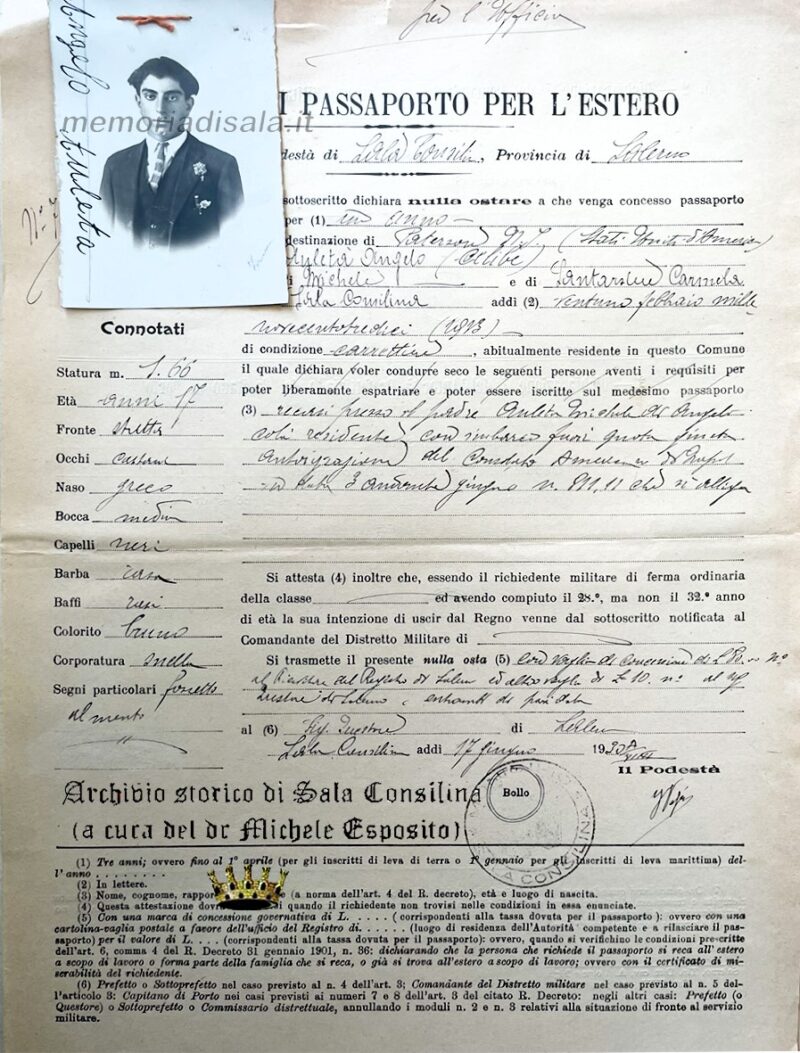 per l'Ufficio
Angelo Auleta
memoriadisala.it
I PASSAPORTO PER L'ESTERO
destà di Sala Consilina, Provincia di Salerno
sottoscritto dichiara nulla ostare a che venga concesso passaporto
per (1) un anno
destinazione di Paterson N.J. (Stati Uniti d'America)
Auleta Angelo (celibe)
Michele e di Santarsiere Carmela
Sala Consilina addì (2) ventuno febbraio mille
novecentotredici (1913)
di condizione carrettiere, abitualmente residente in questo Comune
il quale dichiara voler condurre seco le seguenti persone aventi i requisiti per
poter liberamente espatriare e poter essere iscritte sul medesimo passaporto
(3) recasi presso il padre Auleta Michele di Angelo
colà residente, con imbarco fuori quota giusta
Autorizzazione del Consolato Americano di Napoli
in data 3 andante giugno n. 811,11 che si allega
Connotati
Statura m. 1.66
Età anni 17
Fronte stretta
Occhi castani
Naso greco
Bocca media
Capelli neri
Barba rasa
Baffi rasi
Colorito bruno
Corporatura snella
Segni particolari fossetta
al mento
Si attesta (4) inoltre che, essendo il richiedente militare di ferma ordinaria
della classe ed avendo compiuto il 28.º, ma non il 32.º anno
di età la sua intenzione di uscir dal Regno venne dal sottoscritto notificata al
Comandante del Distretto Militare di
Si trasmette il presente nulla osta (5) con vaglia di concessione di £ nº
al Ricevitore del Registro di Salerno ed altro vaglia di £ 10. nº al sig
Questore di Salerno, entrambi di pari data
al (6) Sig. Questore di Salerno
Sala Consilina addì 17 giugno 1930
Il Podestà
Bollo
CONSILINA
Archivio storico di Sala Consilina
(a cura del dr Michele Esposito)
(1) Tre anni; ovvero fino al 1º aprile (per gli inscritti di leva di terra o 1º gennaio per gli inscritti di leva marittima) del-
l'anno . . . . . . . .
(2) In lettere.
(3) Nome, cognome, rappor (a norma dell'art. 4 del R. decreto), età e luogo di nascita.
(4) Questa attestazione dovrà quando il richiedente non trovisi nelle condizioni in essa enunciate.
(5) Con una marca di concessione governativa di L. . . . . (corrispondenti alla tassa dovuta per il passaporto ): ovvero con una
cartolina-vaglia postale a favore dell'ufficio del Registro di. . . . . . (luogo di residenza dell'Autorità competente e a rilasciare il pas-
saporto) per il valore di L. . . . (corrispondenti alla tassa dovuta per il passaporto): ovvero, quando si verifichino le condizioni prescritte
dell'art. 6, comma 4 del R. Decreto 31 gennaio 1901, n. 36: dichiarando che la persona che richiede il passaporto si reca all'estero
a scopo di lavoro o forma parte della famiglia che si reca, o già si trova all'estero a scopo di lavoro; ovvero con il certificato di mi-
serabilità del richiedente.
(6) Prefetto o Sottoprefetto nel caso previsto al n. 4 dell'art. 3; Comandante del Distretto militare nel caso previsto al n. 5 del-
l'articolo 3: Capitano di Porto nei casi previsti ai numeri 7 e 8 dell'art. 3 del citato R. Decreto: negli altri casi: Prefetto (o
Questore) o Sottoprefetto o Commissario distrettuale, annullando i moduli n. 2 e n. 3 relativi alla situazione di fronte al servizio
militare.